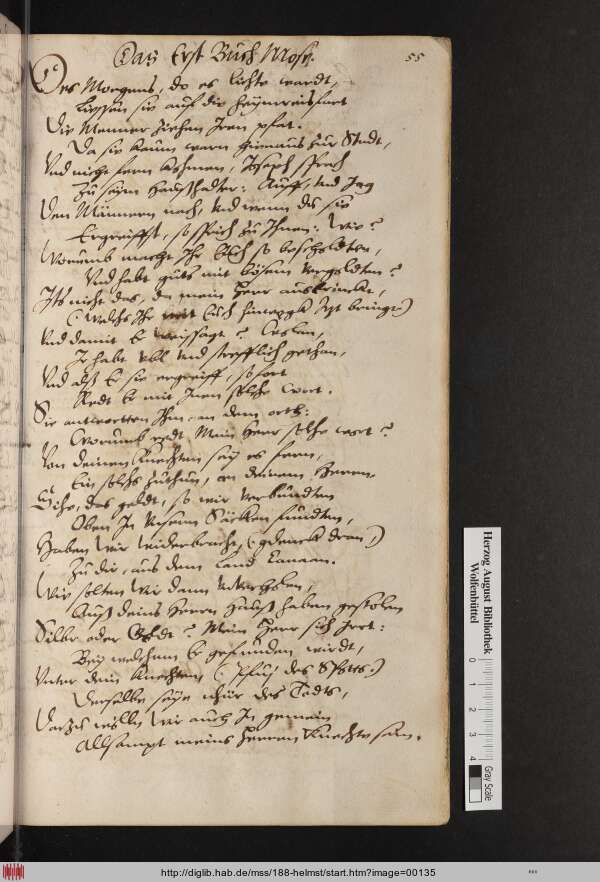 Das Erst Buch Mose.
55
Des Morgens, do es lichte wardt,
Liessen sie auf die heimreis fart
Die Menner ziehen Iren pfat.
Da sie kaum warn hienaus zur Stadt,
Und nicht fern kohmen, Joseph sprach
Zu seim Haußhalter: Auff, und Jag
Den Männern nach, und wenn du sie
Ergreiffst, so sprich zu Ihnen: Wie?
Worumb macht Ihr Euch so bescholdten,
Und habt guts mit bösem vergoldten?
Ists nicht das, da mein Herr austrincket,
(Welchs Ihr mit Euch hinwegk itzt bringt)
Und damit Er weissagt?
Ir habt Ubl und strefflich gethan,
Und alß Er sie ergreiff, so fort
Redt Er mit Inen solche wort.
Sie antwortten Ihm an dem orth:
Worumb redt Mein Herr solche wort?
Von deinen Knechten sey es fern,
Ein solchs zuthun, an deinem Herrn.
Sihe, das geldt, so wir verbundten
Oben In Unsern Säcken fundten,
Haben wir widerbracht, (gdenck dran,)
Zu dir, aus dem Land Canaan.
Wie solten wir dann
Auß deins Herrn Hauß haben gestoln
Silber oder Goldt? Mein Herr sich Irrt:
Bey welchem Er gefunden wirdt,
Unter dein Knechten, (Pfuy des Spotts.)
Derselbe seye des Todts,
Darzu wölln wir auch In gemein
Allsampt meins Herren Knechte sein.
Herzog August Bibliothek
Wolfenbüttel
0 1 2 3 4
Gray Scale
http://diglib.hab.de/mss/188-helmst/start.htm?image=00135